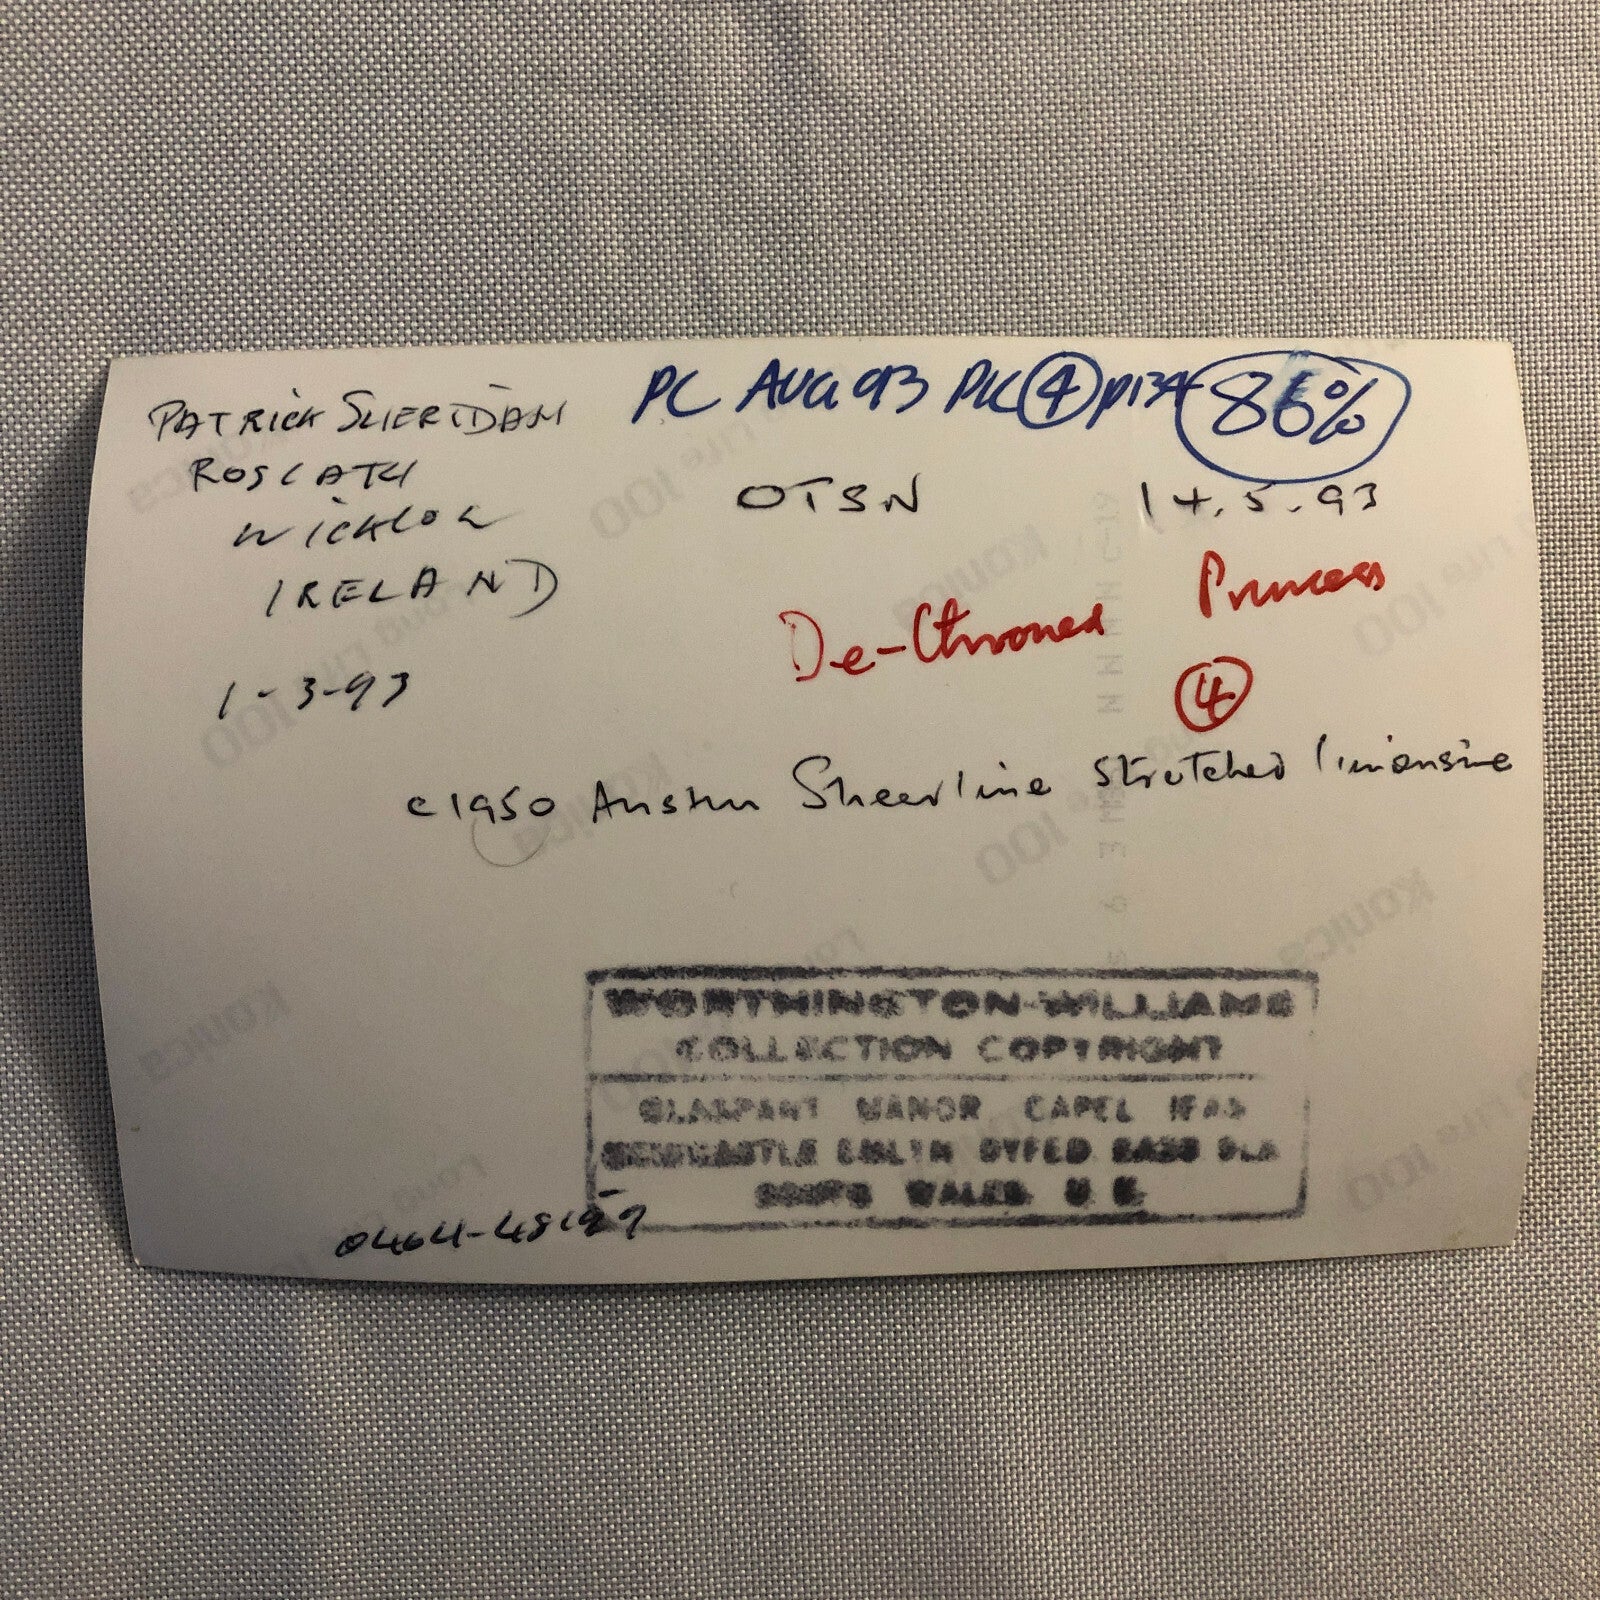 PATRICK SHERIDAN
ROSCATH
WICKLOW
IRELAND
1-3-93
PC AUG 93 PK 4 p134 86%
OTSN 14.5.93
De-throned Princess
4
c1950 Austin Sheerline stretched limousine
WORTHINGTON-WILLIAMS
COLLECTION COPYRIGHT
GLASPANT MANOR CAPEL IFAN
NEWCASTLE EMLYN DYFED
WALES U K
0404-48199
Konica